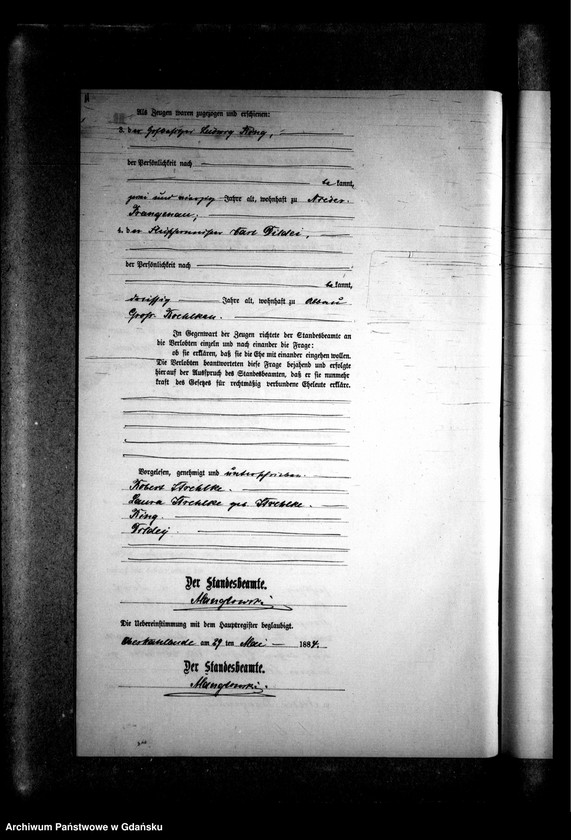 Als Zeugen waren zugezogen und erschienen:
3. der Hofbesitzer Ludwig König,
der Persönlichkeit nach
be kannt,
zwei und vierzig Jahre alt, wohnhaft zu Nieder-
Prangenau;
4. der Carl
der Persönlichkeit nach
be kannt,
dreißig Jahre alt, wohnhaft zu
Groß
In Gegenwart der Zeugen richtete der Standesbeamte an
die Verlobten einzeln und nach einander die Frage:
ob sie erklären, daß sie die Ehe mit einander eingehen wollen.
Die Verlobten beantworteten diese Frage bejahend und erfolgte
hierauf der Ausspruch des Standesbeamten, daß er sie nunmehr
kraft des Gesetzes für rechtmäßig verbundene Eheleute erkläre.
Vorgelesen, genehmigt und unterschrieben.
Robert Strehlke.
Laura Strehlke geb. Strehlke.
König.
Der Standesbeamte.
Die Uebereinstimmung mit dem Hauptregister beglaubigt.
am 29 ten Mai 1884.
Der Standesbeamte.
Archiwum Państwowe w Gdańsku